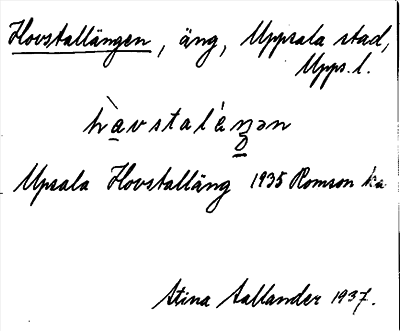 Hovstallängen, äng, Uppsala stad,
Upps. l.
hàvstaláŋən
Upsala Hovstalläng 1935 Romson ka
Stina Sallander 1937.